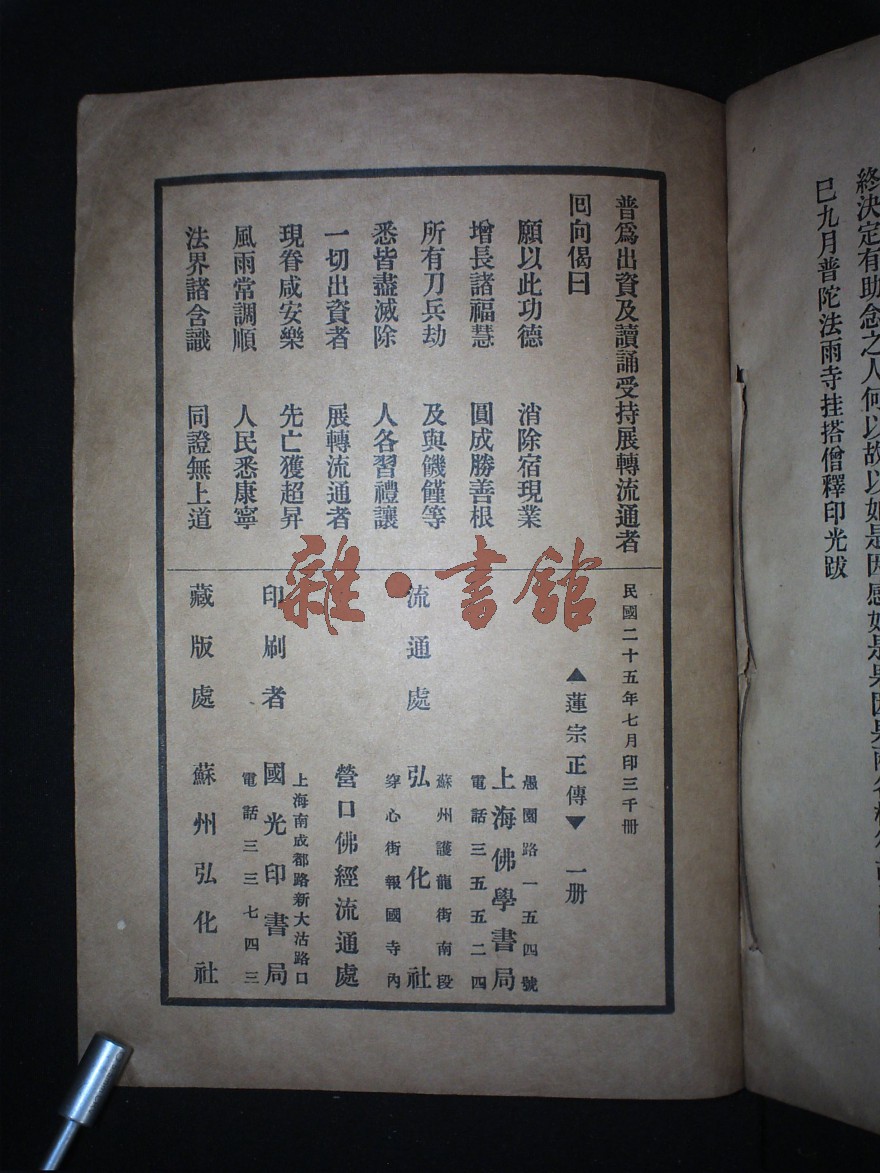 終決定有助念之人何以故以如是因感如是果因果
巳九月普陀法雨寺挂搭僧釋印光跋
普爲出資及讀誦受持展轉流通者
回向偈曰
願以此功德 消除宿現業
增長諸福慧 圓成勝善根
所有刀兵劫 及與饑饉等
悉皆盡滅除 人各習禮讓
一切出資者 展轉流通者
現眷咸安樂 先亡獲超昇
風雨常調順 人民悉康寧
法界諸含識 同證無上道
民國二十五年七月印三千冊
▲蓮宗正傳▼ 一册
流通處
愚園路一五四號
上海佛學書局
電話三五五二四
蘇州護龍街南段
弘化社
穿心街報國寺內
營口佛經流通處
印刷者
上海南成都路新大沽路口
國光印書局
電話三三七四三
藏版處 蘇州弘化社
雜·書館